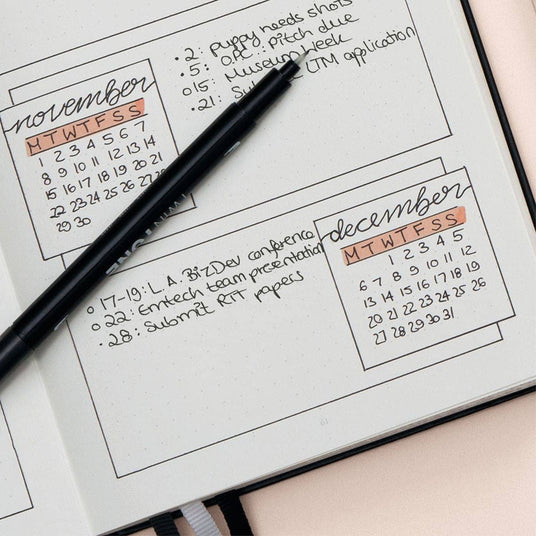 • 2: puppy needs shots
• 5: O.P.C.: Pitch due
o 15: Museum Week
• 21: LTM application
november
M T W T F S S
1 2 3 4 5 6 7
8 9 10 11 12 13 14
15 16 17 18 19 20 21
22 23 24 25 26 27
29 30
TWIN TONE
december
M T W T F S S
1 2 3 4 5
6 7 8 9 10 11 12
13 14 15 16 17 18 19
20 21 22 23 24 25 26
27 28 29 30 31
o 17-19: L.A. BizDev conference
o 22: Emtech team presentation
• 28: Submit RTT papers
61